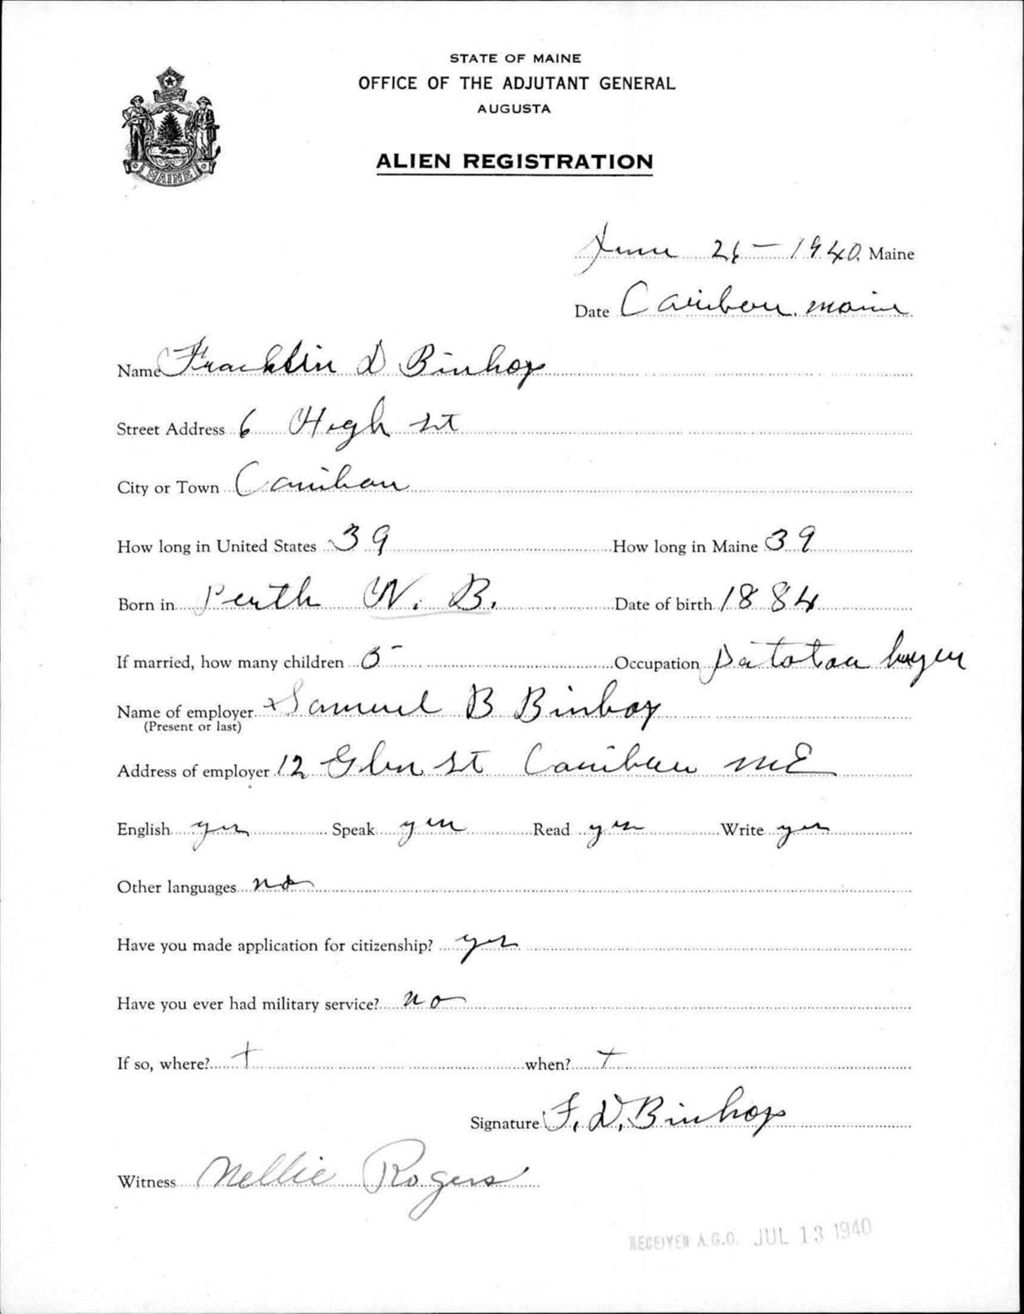 STATE OF MAINE
OFFICE OF THE ADJUTANT GENERAL
AUGUSTA
MAINE
ALIEN REGISTRATION
June 26 - 1940, Maine
Date Caribou, Maine
Name Franklin D Bishop
Street Address 6 High St
City or Town Caribou
How long in United States 39 How long in Maine 39
Born in Perth N. B. Date of birth 1884
If married, how many children 5 Occupation Potatoe buyer
Name of employer Samuel B Bishop
(Present or last)
Address of employer 12 Glen St Caribou ME
English yes Speak yes Read yes Write yes
Other languages no
Have you made application for citizenship? yes
Have you ever had military service? no
If so, where? + when? +
Signature F. D. Bishop
Witness Nellie Rogers
RECEIVED A.G.O. JUL 13 1940